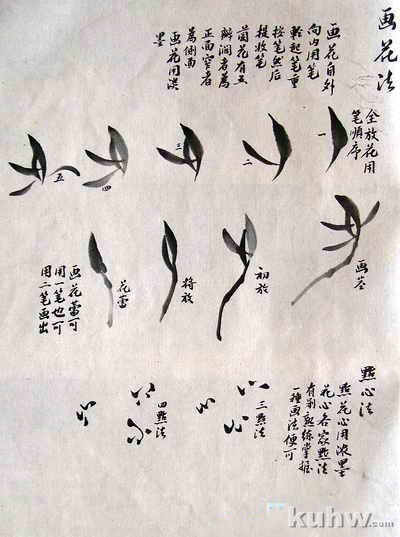 画花法
画花自外
向内用笔
輕起笔重
按笔然后
提收笔
蘭花有五
瓣阔者為
正面窄者
為側面
画花用淡
墨
全放花用
笔順序
一
二
三
四
五
画茎
初放
将放
花蕾
画花蕾可
用一笔也可
用二笔画出
點心法
點花心用浓墨
花心各家點法
有别熟練掌握
一種画法便可
三點法
四點法
kuhw.com